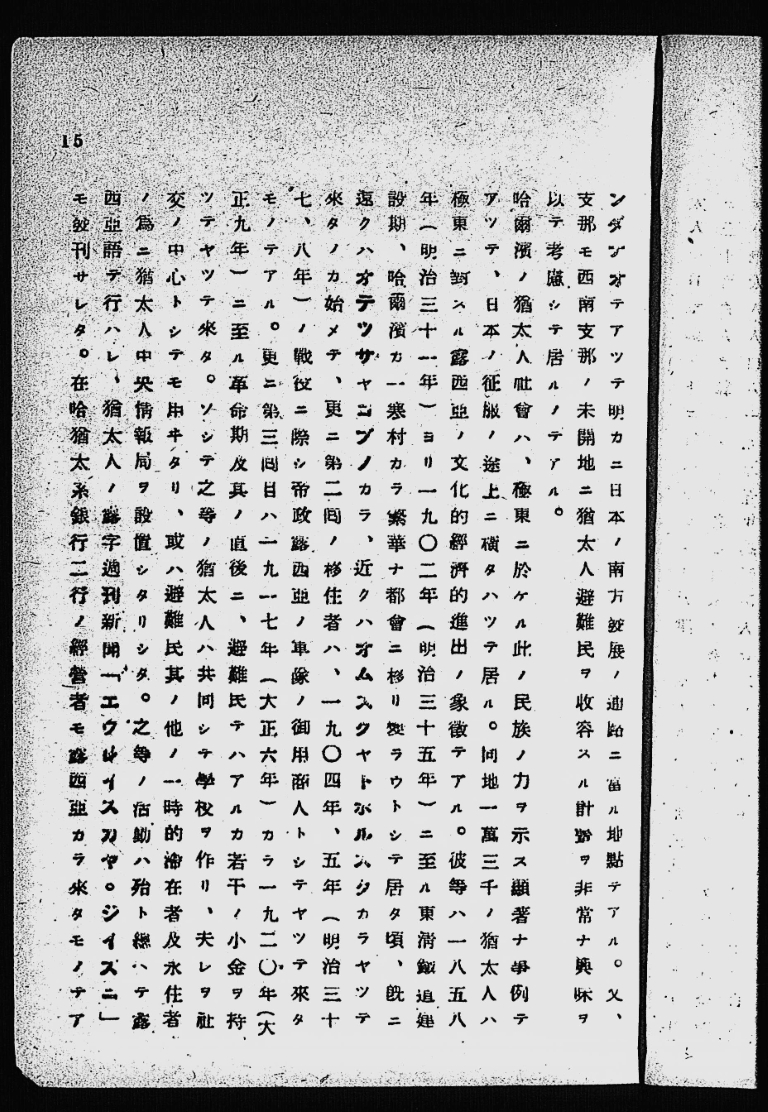 15
ンダンオデアツテ明カニ日本ノ南方發展ノ通路ニ當ル地點デアル。又、
支那モ西南支那ノ未開地ニ猶太人避難民ヲ收容スル計畫ヲ非常ナ興味ヲ
以テ考慮シテ居ルノデアル。
哈爾濱ノ猶太人社會ハ、極東ニ於ケル此ノ民族ノ力ヲ示ス顯著ナ事例デ
アツテ、日本ノ征服ノ途上ニ横タハツテ居ル。同地一萬三千ノ猶太人ハ
極東ニ對スル露西亞ノ文化的經濟的進出ノ象徴デアル。彼等ハ一八五八
年(明治三十一年)ヨリ一九〇二年(明治三十五年)ニ至ル東淸鐵道建
設期、哈爾濱カ一寒村カラ繁華ナ都會ニ移リ變ラウトシテ居タ頃、既ニ
遠クハオデツサヤコブノカラ、近クハオムスクヤトボルスクカラヤツテ
來タノカ始メデ、更ニ第二囘ノ移住者ハ、一九〇四年、五年(明治三十
七、八年)ノ戰役ニ際シ帝政露西亞ノ軍隊ノ御用商人トシテヤツテ來タ
モノデアル。更ニ第三囘目ハ一九一七年(大正六年)カラ一九二〇年(大
正九年)ニ至ル革命期及其ノ直後ニ、避難民デハアルカ若干ノ小金ヲ持
ツテヤツテ來タ。ソシテ之等ノ猶太人ハ共同シテ學校ヲ作リ、夫レヲ社
交ノ中心トシテモ用ヰタリ、或ハ避難民其ノ他ノ一時的滯在者及永住者
ノ爲ニ猶太人中央情報局ヲ設置シタリシタ。之等ノ活動ハ殆ト總ヘテ露
西亞語デ行ハレ、猶太人ノ露字週刊新聞「エウレイスカヤ。ジイスニ」
モ發刊サレタ。在哈猶太系銀行二行ノ經營者モ露西亞カラ來タモノデア